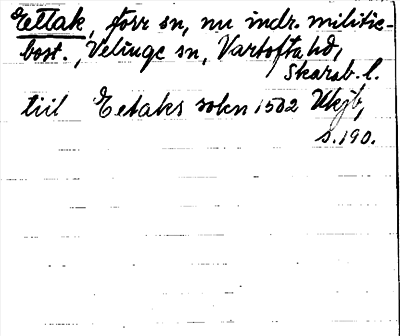 Ettak, förr sn, nu indr. militie-
bost., Velinge sn, Vartofta hd,
Skarab. l.
till Eetaks sokn 1502 Ukjb,
s. 190.